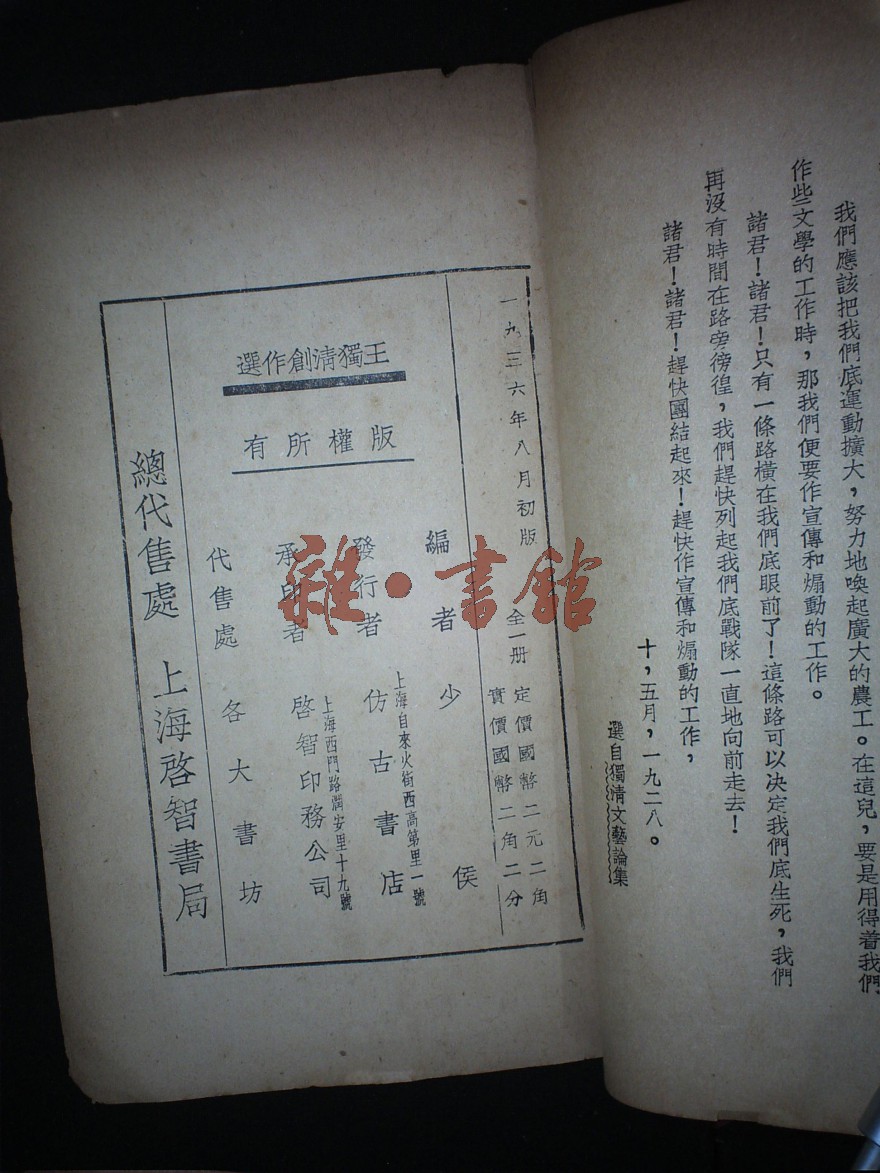 我們應該把我們底運動擴大，努力地喚起廣大的農工。在這兒，要是用得着我們
作些文學的工作時，那我們便要作宣傳和煽動的工作。
諸君！諸君！只有一條路橫在我們底眼前了！這條路可以决定我們底生死，我們
再沒有時間在路旁徬徨，我們趕快列起我們底戰隊一直地向前走去！
諸君！諸君！趕快團結起來！趕快作宣傳和煽動的工作，
十，五月，一九二八。
選自獨清文藝論集
一九三六年八月初版
全一册
定價國幣二元二角
實價國幣二角二分
王獨清創作選
版權所有
編者 少侯
發行者 仿古書店
上海自來火街西高第里一號
承印者 啓智印務公司
上海西門路潤安里十九號
代售處 各大書坊
總代售處 上海啓智書局
雜·書館